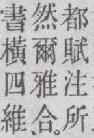 都賦注所
然爾雅、合。
書橫四維